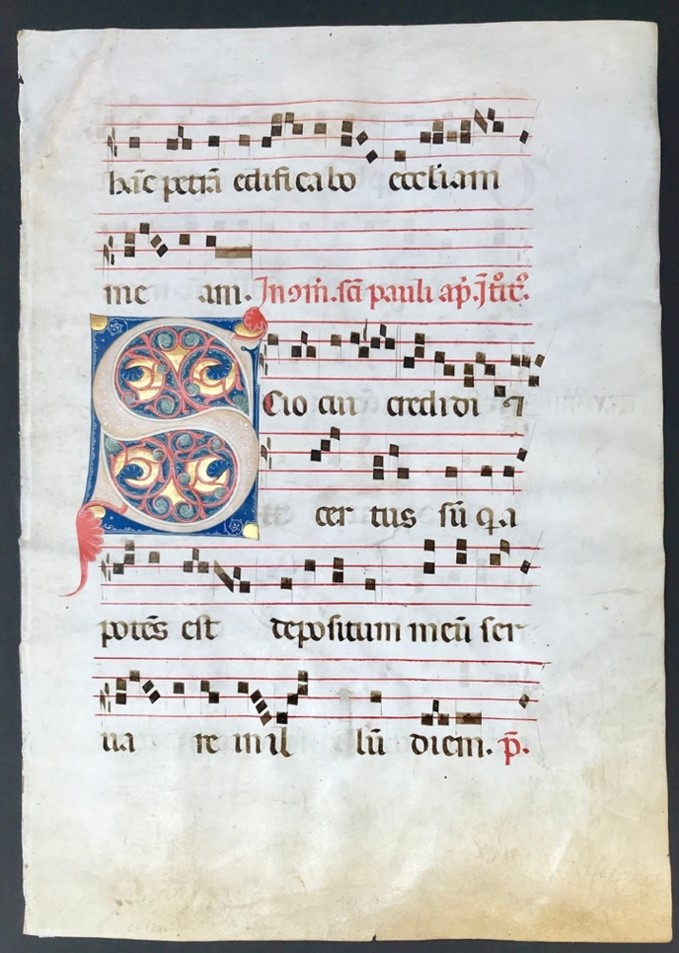 hāc petrā edificabo eccliam
me am. In oīn. sc̄i pauli ap̄. Itr̄.
Scio cui credidi ⁊
cer tus sū q̄a
potēs est depositum meū ser
ua re in il lū diem. p̄.